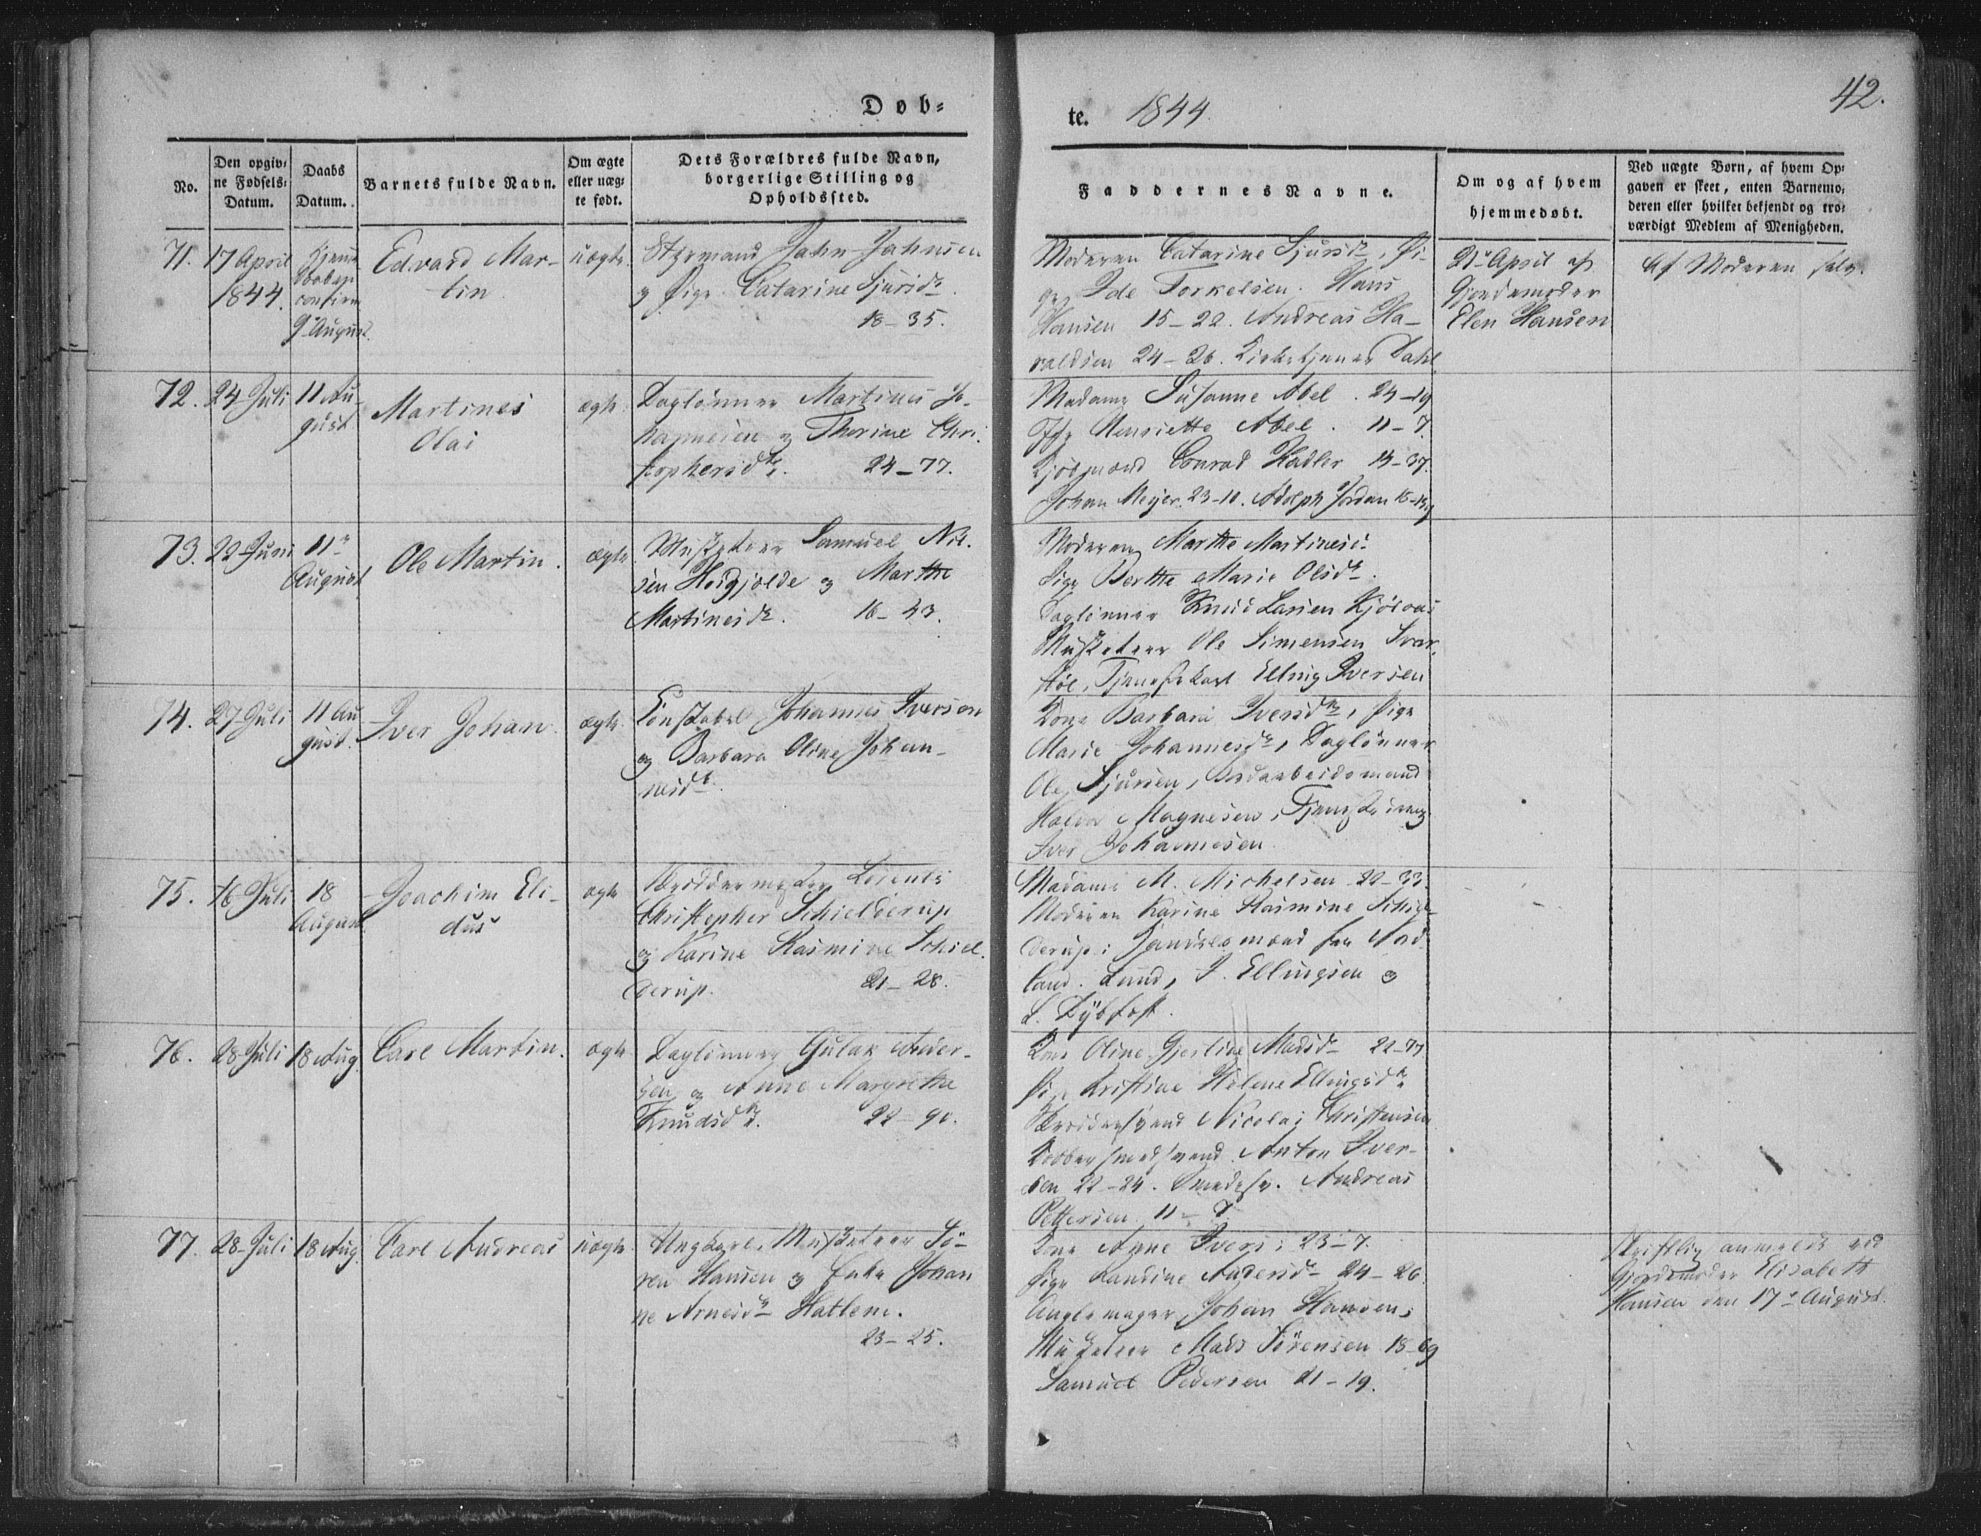 Døb-
te. 1844.
42.
No.
Den opgiv-
ne Fødsels-
Datum.
Daabs
Datum.
Barnets fulde Navn.
Om ægte
eller uæg-
te født.
Dets Forældres fulde Navn,
borgerlige Stilling og
Opholdssted.
Faddernes Navne.
Om og af hvem
hjemmedøbt.
Ved uægte Børn, af hvem Op-
gaven er skeet, enten Barnemo-
deren eller hvilket bekjendt og tro-
værdigt Medlem af Menigheden.
71.
17 April
1844.
Hjemme
Daaben
confirm
9 August.
Edvard Mar-
tin
uægte
Styrmand John Johnsen
og Pige Catarine Sjursdr.
18-35.
Moderen Catarine Sjursdr, Pi-
ge Ide Torkelsen. Hans
Hansen 15-22. Andreas Ha-
raldsen 24-26. Kirketjener Dahl
21 April af
Gjordemoder
Elen Hansen
Af Moderen selv.
72.
24 Juli
11 Au
gust
Martines
Olai
ægte
Daglønner Martinus Jo-
hannesen og Thorine Chri-
stophersdr. 24-77.
Madame Susanne Abel. 24-19
Jfr Henriette Abel. 11-7.
Kjøbmand Conrad Kahler 14-37.
Johan Meyer 23-10. Adolph Jordan
73.
22 Juni
11
August
Ole Martin.
ægte
Musketeer Samuel Nil-
sen Høigjelde og Marthe
Martinesdr. 16-43.
Moderen Marthe Martinesd.
Pige Berthe Marie Olsdr.
Daglønner Knud Larsen
Musketeer Ole Simensen Svar
støl, Tjenestekarl Elling Iversen
74.
27 Juli
11 Au
gust.
Iver Johan.
ægte
Constabel Johannes Iverson
og Barbara Oline Johan-
nesdr.
Kone Barbara Iversdr, Pige
Marie Johannesdr, Daglønner
Ole Sjursen, Jordarbeidsmand
Halvor Magnesen, Tjenestedreng
Iver Johannesen
75.
16 Juli
18
August
Joachim Eli-
dus
ægte
Skræddermester Lorents
Christopher Schielderup
og Karine Rasmine Schiel-
derup. 21-28.
Madame M. Michelsen 22-33.
Moderen Karine Rasmine Schiel-
derup; Handelsmænd fra Nord
land. Lund, J. Ellingsen og
L. Dybfest.
76.
28 Juli
18 Aug
Carl Martin.
ægte
Daglønner Gulak Ander-
sen og Anne Margrethe
Knudsdr. 22-90.
Kone Oline Gjertine Madsdr 22-77
Pige Kristine Helene Ellingsdr
Skrædersvend Nicolai Christensen
Kobbersmedsvend Anton Iver-
sen 22-24. Smedesv. Andreas
Pettersen 11-7.
77.
28 Juli
18 Aug
Carl Andreas
uægte
Ungkarl, Musketeer Sø-
ren Hansen og Enke Johan
ne Arnesdr Hatlem.
23-25.
Kone Anne Ivers: 23-7.
Pige Randine Andersdr 24-26
Johan Hansen,
Musketeer Mads Sørensen 18-69
Samuel Pedersen 21-19.
skriftlig anmeldt ved
Gjordemoder Elisabeth
Hansen den 17 August.